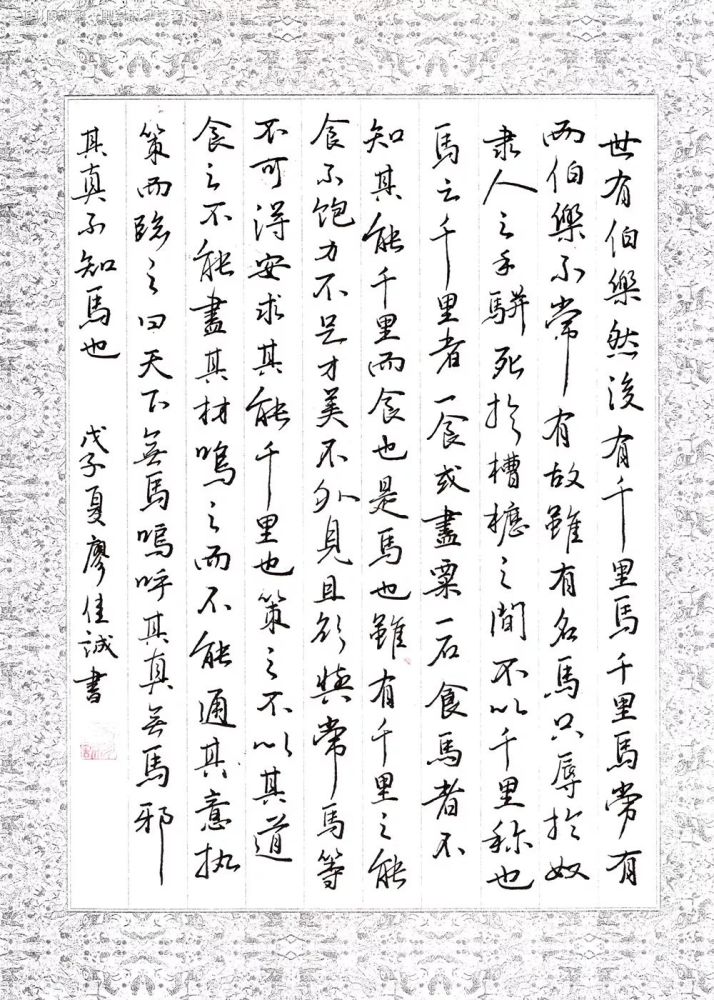 世有伯樂然後有千里馬千里馬常有
而伯樂不常有故雖有名馬只辱於奴
隶人之手駢死於槽櫪之間不以千里称也
馬之千里者一食或盡粟一石食馬者不
知其能千里而食也是馬也雖有千里之能
食不飽力不足才美不外見且欲與常馬等
不可得安求其能千里也策之不以其道
食之不能盡其材鳴之而不能通其意执
策而臨之曰天下無馬嗚呼其真無馬邪
其真不知馬也 戊子夏廖佳誠書